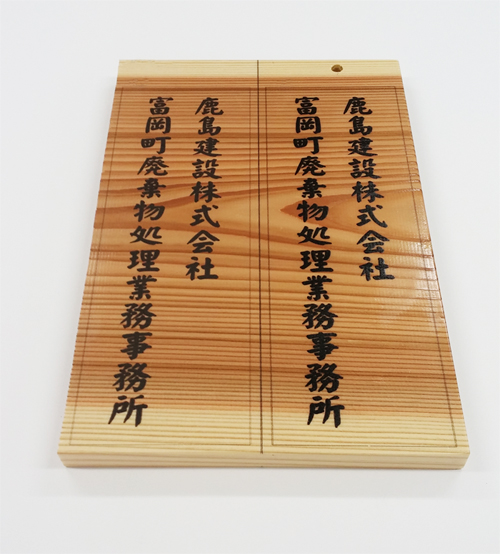 鹿島建設株式会社
富岡町廃棄物処理業務事務所
鹿島建設株式会社
富岡町廃棄物処理業務事務所